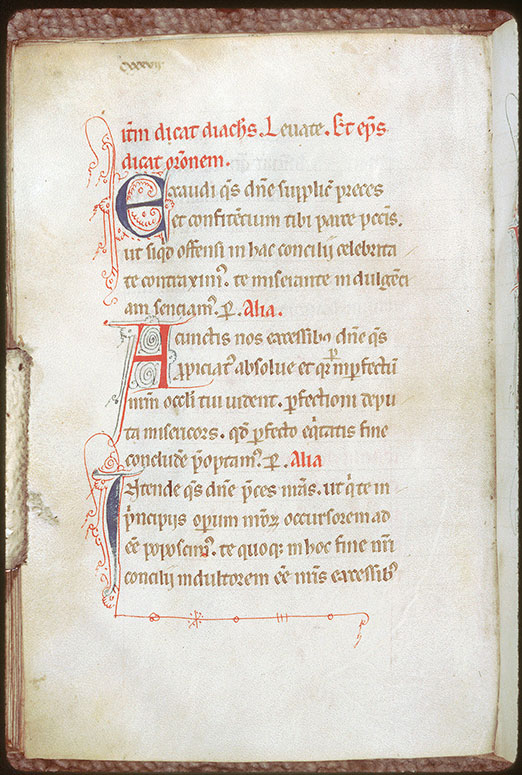 Itm dicat diacħs. Leuate. Et ep̄s
dicat or̄onem.
Exaudi q̄s dn̄e supplic̄ preces
et confitentium tibi parce pecc̄is.
ut siqd̄ offensi in hac concilij celebrita
te contraximꝰ. te miserante indulgenci
am senciamꝰ. P̄. Alia.
A cunctis nos excessibꝰ dn̄e q̄s
ꝓpiciatꝰ absolue et
nr̄m oculi tui uident. ꝑfectioni depu
ta misericors. qd̄ ꝑfecto eq̄tatis fine
conclude p̄optamꝰ. P̄. Alia
Intende q̄s dn̄e p̄ces nr̄as. ut q̄ te in
p̄ncipijs operum nr̄oꝝ occursorem ad
ee̅ poposcimꝰ. te quoqꝫ in hoc fine nr̄i
concilij indultorem ee̅ nr̄is excessibꝰ